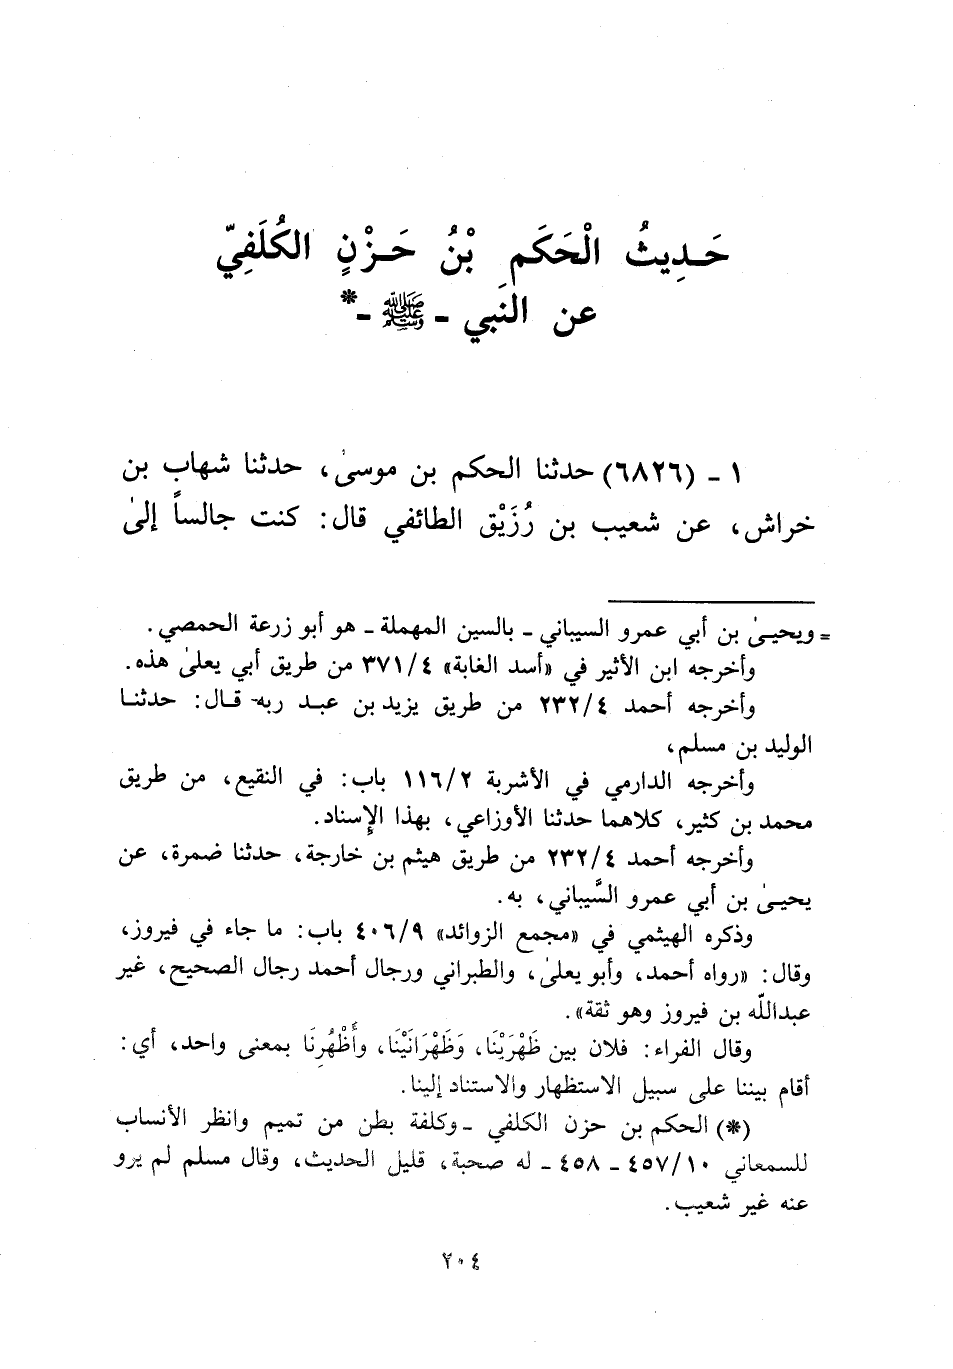 حَـدِيثُ الْحَكَمِ بْنُ حَـزْنٍ الكُلَفِيّ
عن النَبي ـ ﷺ ـ*
١ ـ (٦٨٢٦) حدثنا الحكم بن موسىٰ، حدثنا شهاب بن
خراش، عن شعيب بن رُزَيْق الطائفي قال: كنت جالساً إلىٰ
= ويحيـىٰ بن أبي عمرو السيباني ـ بالسين المهملة ـ هو أبو زرعة الحمصي.
وأخرجه ابن الأثير في «أسد الغابة» ٣٧١/٤ من طريق أبي يعلىٰ هذه.
وأخرجه أحمد ٢٣٢/٤ من طريق يزيد بن عبـد ربه قـال: حدثنـا
الوليد بن مسلم،
وأخرجه الدارمي في الأشربة ١١٦/٢ باب: في النقيع، من طريق
محمد بن كثير، كلاهما حدثنا الأوزاعي، بهذا الإِسناد.
وأخرجه أحمد ٢٣٢/٤ من طريق هيثم بن خارجة، حدثنا ضمرة، عن
يحيـىٰ بن أبي عمرو السَّيباني، به.
وذكره الهيثمي في «مجمع الزوائد» ٤٠٦/٩ باب: ما جاء في فيروز،
وقال: «رواه أحمد، وأبو يعلىٰ، والطبراني ورجال أحمد رجال الصحيح، غير
عبدالله بن فيروز وهو ثقة».
وقال الفراء: فلان بين ظَهْرَيْنَا، وَظَهْرَانَيْنَا، وأَظْهُرِنَا بمعنى واحد، أي:
أقام بيننا على سبيل الاستظهار والاستناد إلينا.
(*) الحكم بن حزن الكلفي ـ وكلفة بطن من تميم وانظر الأنساب
للسمعاني ٤٥٧/١٠ ـ ٤٥٨ ـ له صحبة، قليل الحديث، وقال مسلم لم يرو
عنه غير شعيب.
٢٠٤